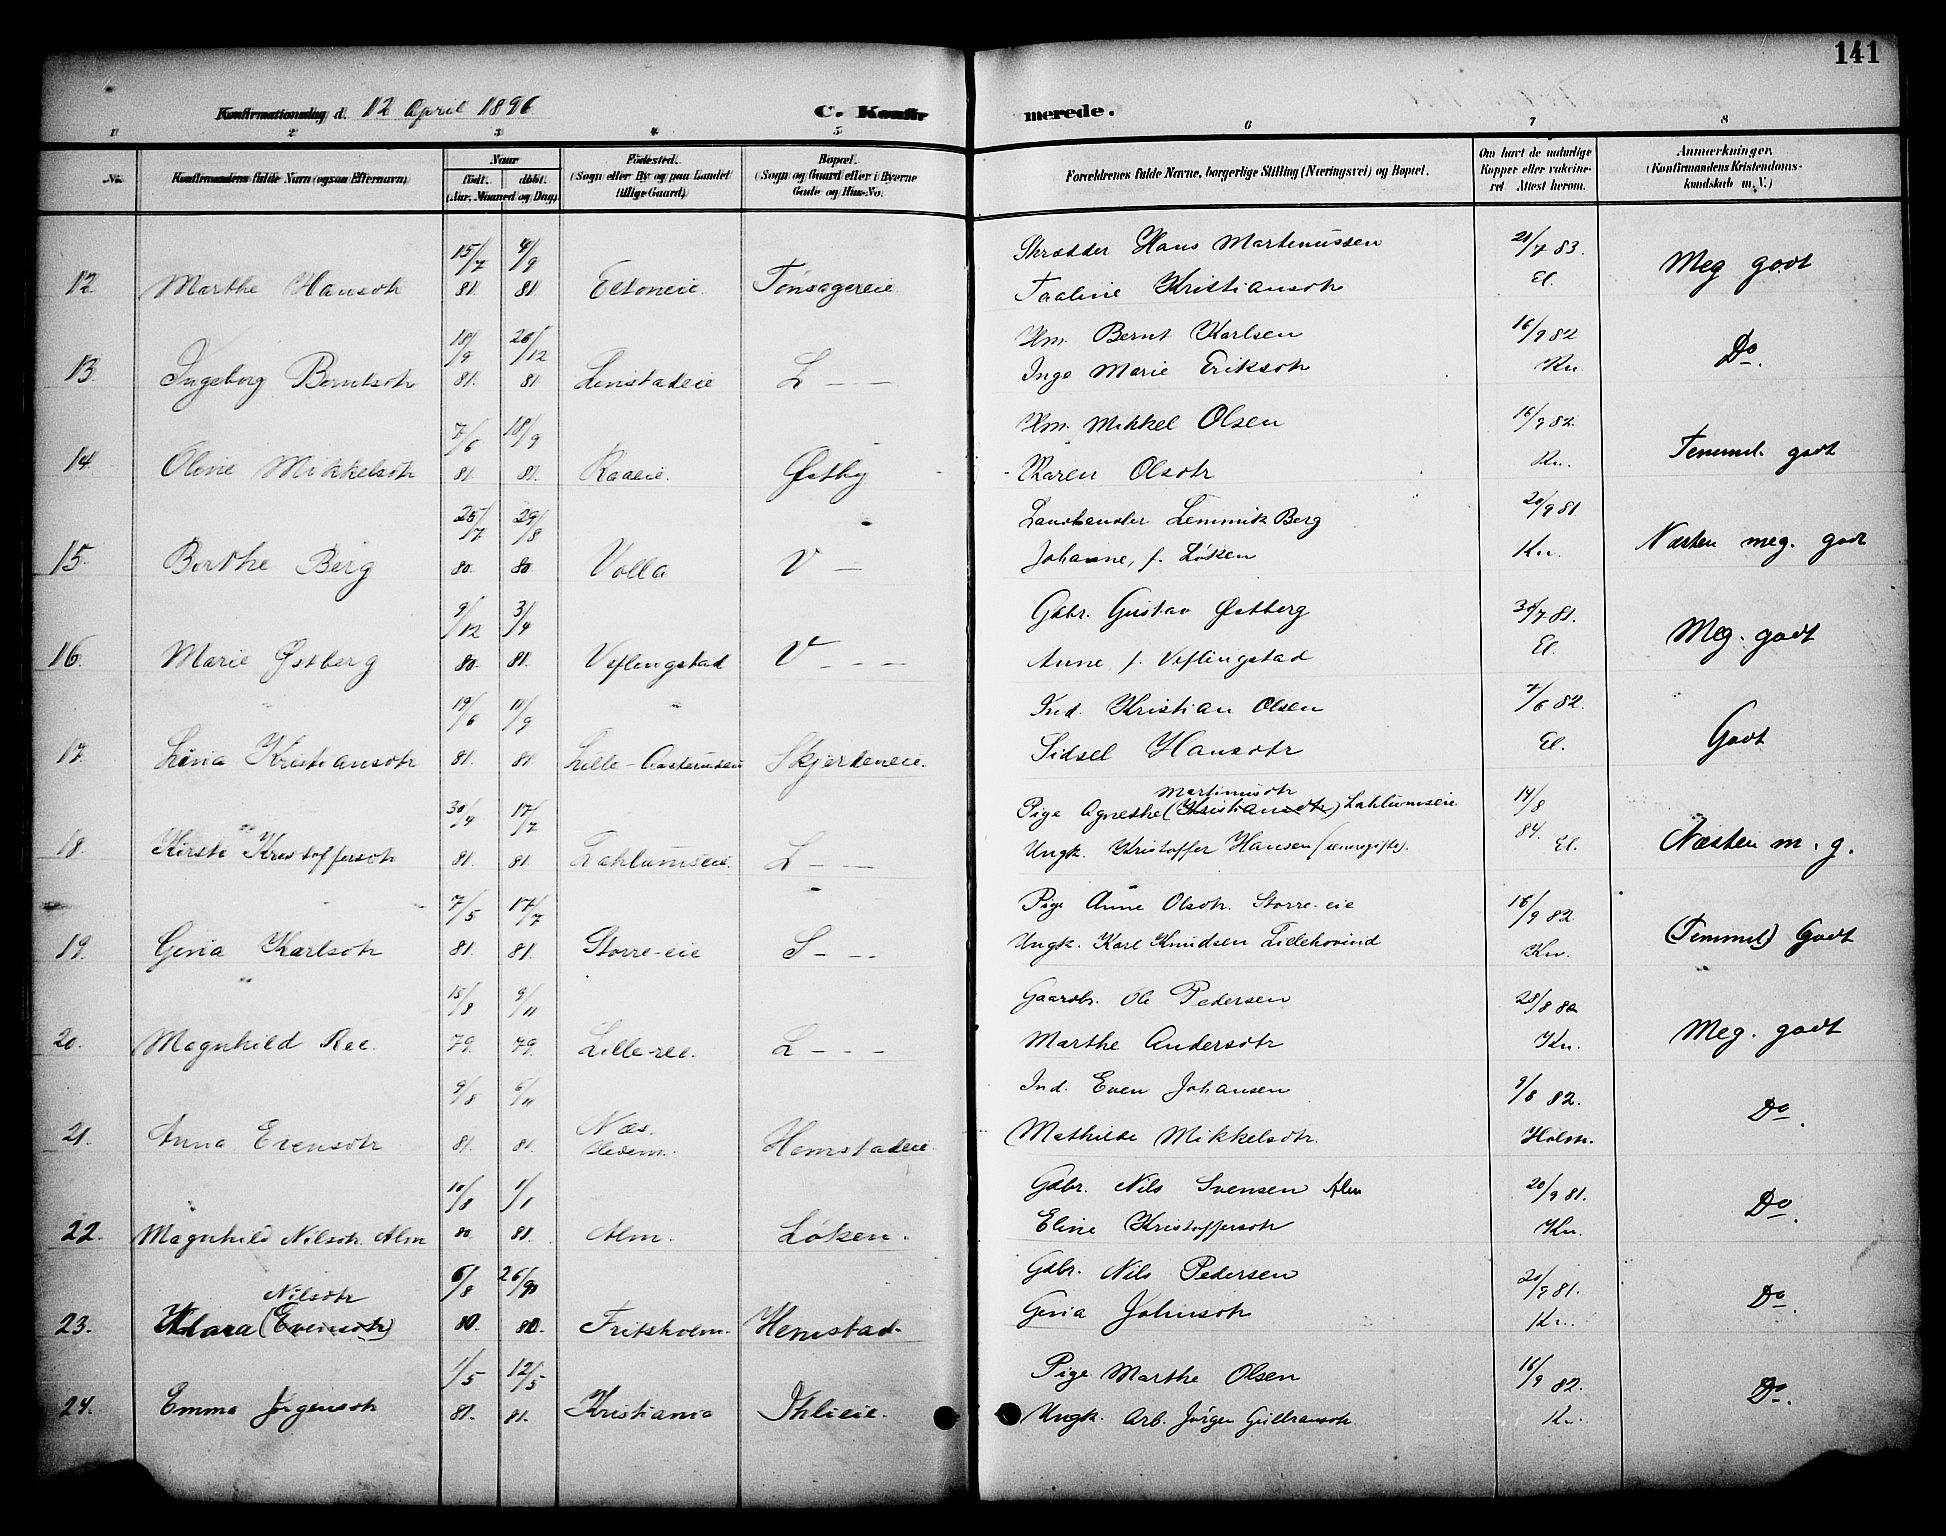 141
Konfirmationsdag d. 12 April 1896
C. Konfir
merede.
1 2 3 4 5 6 7 8
No.
Konfirmandens fulde Navn (ogsaa Efternavn)
Naar
født. døbt.
(Aar, Maaned og Dag)
Fødested.
(Sogn eller By og paa Landet
tillige Gaard)
Bopæl.
(Sogn og Gaard eller i Byerne
Gade og Hus-No.
Forældrenes fulde Navne, borgerlige Stilling (Næringsvei) og Bopæl.
Om havt de naturlige
Kopper eller vakcine-
ret Attest herom.
Anmærkninger.
(Konfirmandens Kristendoms-
kundskab m. V.)
15/7 4/9 Skrædder Hans Martinussen 21/7 83.
12 Marthe Hansdtr 81 81 Eltoneie Tønsagereie Taaline Kristiansdtr El. Meg godt
18/9 26/12 Hm. Bernt Karlsen 16/9 82
13. Ingeborg Berntsdtr 81. 81 Linstadeie L – – Inge Marie Eriksdtr Kn. Do.
7/6 18/9 Hm. Mikkel Olsen 16/9 82.
14 Oline Mikkelsdtr 81 81. Raaeie. Østby Karen Olsdtr Kn. Temmel. godt
25/7 29/8 Landhandler Lemmik Berg 20/9 81
15. Berthe Berg 80. 80 Volla V – Johanne, f. Løken Kn. Næsten meg. godt
9/12 3/4 Gbr. Gustav Østberg 30/7 81.
16. Marie Østberg 80. 81. Veflingstad V – – – Anne f. Veflingstad El. Meg. godt
19/6 11/9 Ind. Kristian Olsen 7/6 82.
17. Lina Kristiansdtr 81. 81 Lille-Aasteruden Skjerdeneie. Sidsel Hansdtr El. Godt
Martinusdtr
30/4 17/7 Pige Agnethe (Kristiansdtr) Lahlumseie 14/8
18. Kirsti Kristoffersdtr 81. 81. Lahlumseie. L – – Ungk. Kristoffer Hansen 84. El. Næsten m. g.
7/5 17/7 Pige Anne Olsdtr. Storre-eie 16/9 82
19. Gina Karlsdtr 81. 81. Storre-eie S – – Ungk. Karl Knudsen Lillehovind Kn. (Temmel) Godt
15/8 9/11 Gaardb. Ole Pedersen 28/8 80
20. Magnhild Ree. 79. 79. Lille-ree. L – – – Marthe Andersdtr Kn. Meg. godt
9/8 6/11 Ind. Even Johansen 9/8 82.
21. Anna Evensdtr 81. 81. Næs. Hedem. Hemstadeie Mathilde Mikkelsdtr. Holstr. Do.
10/8 1/1 Gdbr. Nils Svensen Alm 20/9 81.
22. Magnhild Nilsdtr. Alm 80 81. Alm. Løken. Eline Kristoffersdtr Kn. Do.
Nilsdtr
6/8 26/9 Gdbr. Nils Pedersen 20/9 81.
23. Klara (Evensdtr) 80. 80. Fritsholm. Hemstad. Gina Johnsdtr Kn. Do.
1/5 12/5 Pige Marthe Olsen 16/9 82.
24. Emma Jørgensdtr 81. 81. Kristiania Ihlieie. Ungk. Arb. Jørgen Kn. Do.